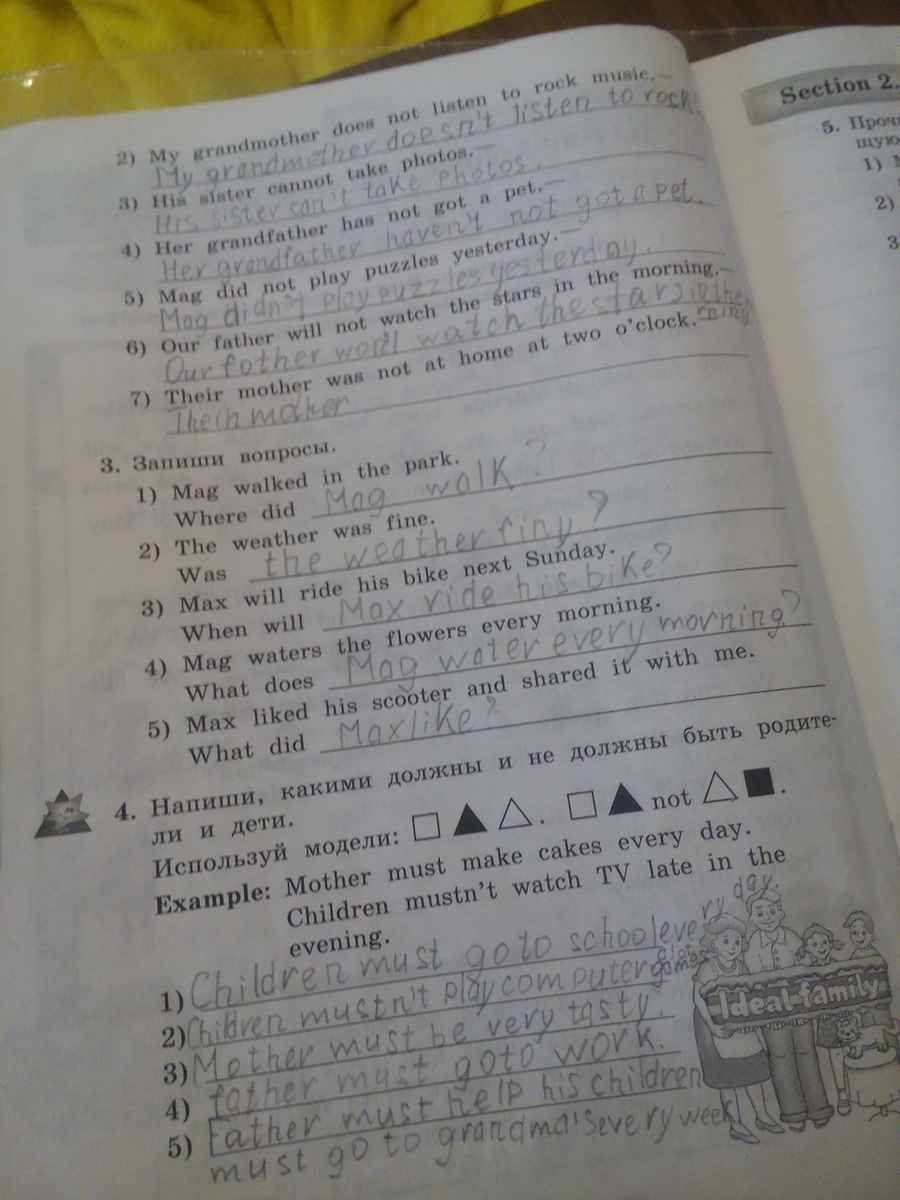 2) My grandmother does not listen to rock music.—
My grandmother doesn't listen to rock.
3) His sister cannot take photos.—
His sister can't take photos.
4) Her grandfather has not got a pet.—
Her grandfather haven't not got a pet.
5) Mag did not play puzzles yesterday.—
Mag didn't play puzzles yesterday.
6) Our father will not watch the stars in the morning.—
Our father won'l watch the stars
rning
7) Their mother was not at home at two o'clock.—
Their mother
3. Запиши вопросы.
1) Mag walked in the park.
Where did Mag walk?
2) The weather was fine.
Was the weather finy?
3) Max will ride his bike next Sunday.
When will Max ride his bike?
4) Mag waters the flowers every morning.
What does Mag water every morning?
5) Max liked his scooter and shared it with me.
What did Max like?
4. Напиши, какими должны и не должны быть родите-
ли и дети.
Используй модели: □ ▲ △. □ ▲ not △ ■.
Example: Mother must make cakes every day.
Children mustn't watch TV late in the
evening.
1) Children must go to school every day.
2) Children mustn't play computer games
3) Mother must be very tasty.
4) father must go to work.
5) Father must help his children
must go to grandma's every week
Ideal family
Section 2.
5. Проч
щую
1)
2)
3